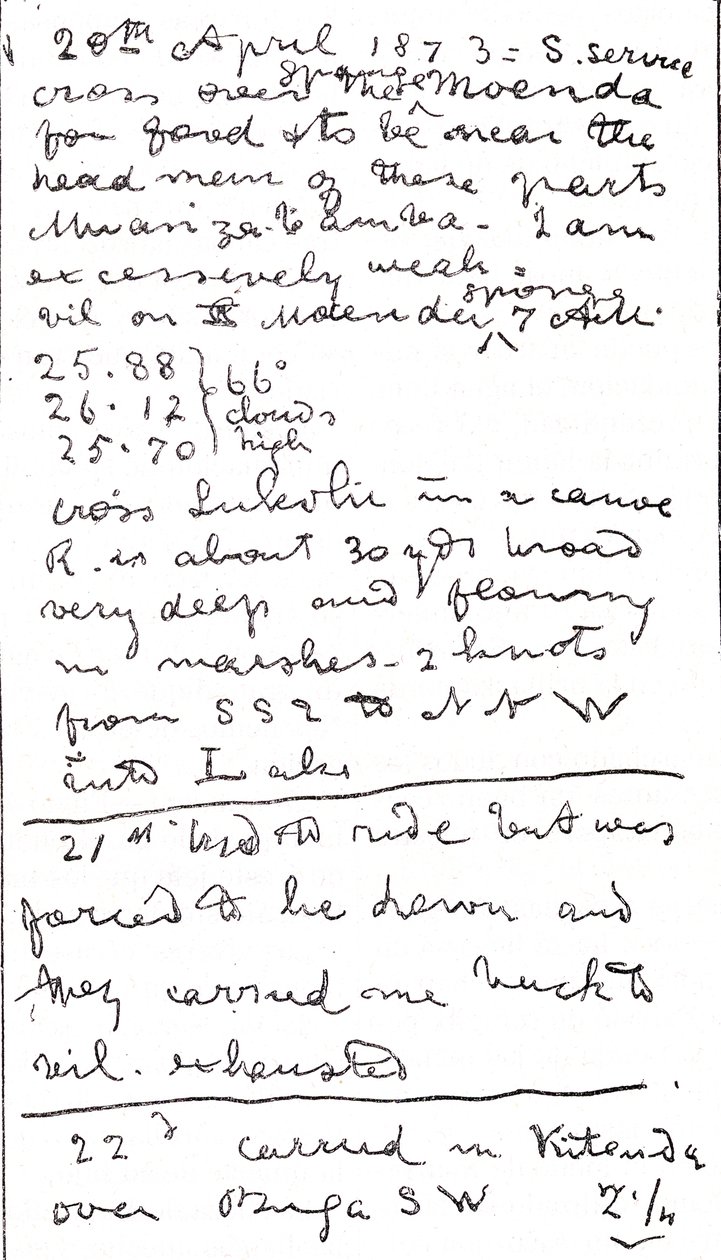 20th April 1873 = S. service
cross over the sponge Moenda
for food & to be near the
head men of these parts
Moanzabamba - I am
excessively weak =
vil on Moenda sponge 7 AM.
25.88 } 66°
26.12 { clouds
25.70 } high
cross Lukolu in a canoe
R. is about 30 yds broad
very deep and flowing
in marshes - 2 knots
from SSE to NNW
into Lake
21st tried to ride but was
forced to lie down and
they carried me back to
vil. exhausted
22d carried in Kitanda
over Buga SW 2 1/4